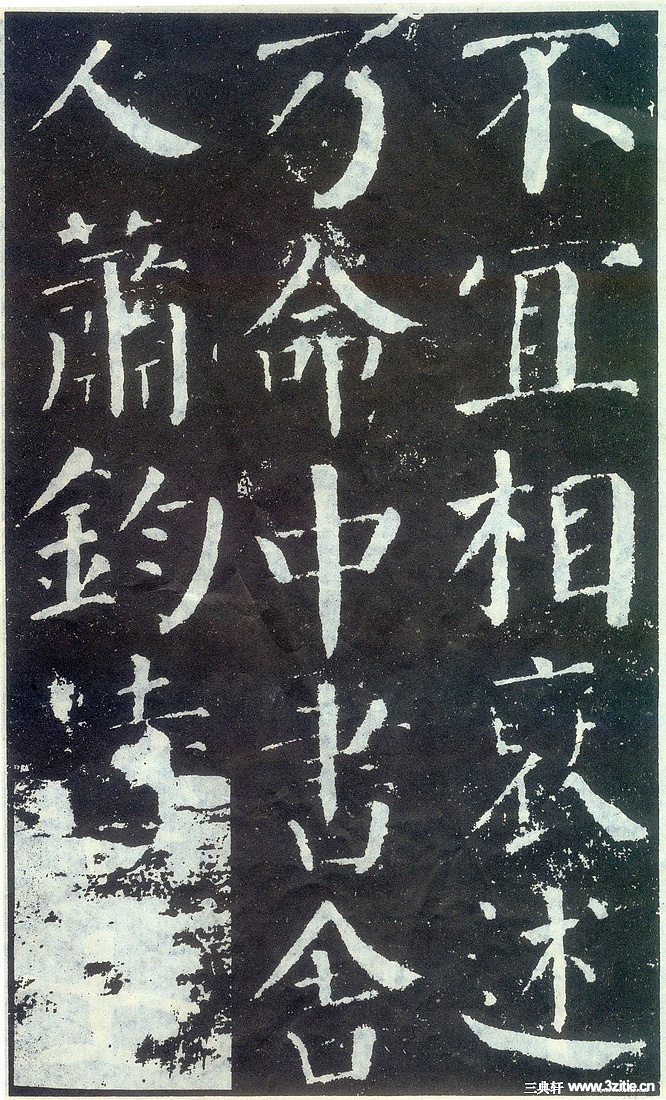 不宜相褒述
乃命中書舍
人蕭鈞特
三典轩 www.3zitie.cn